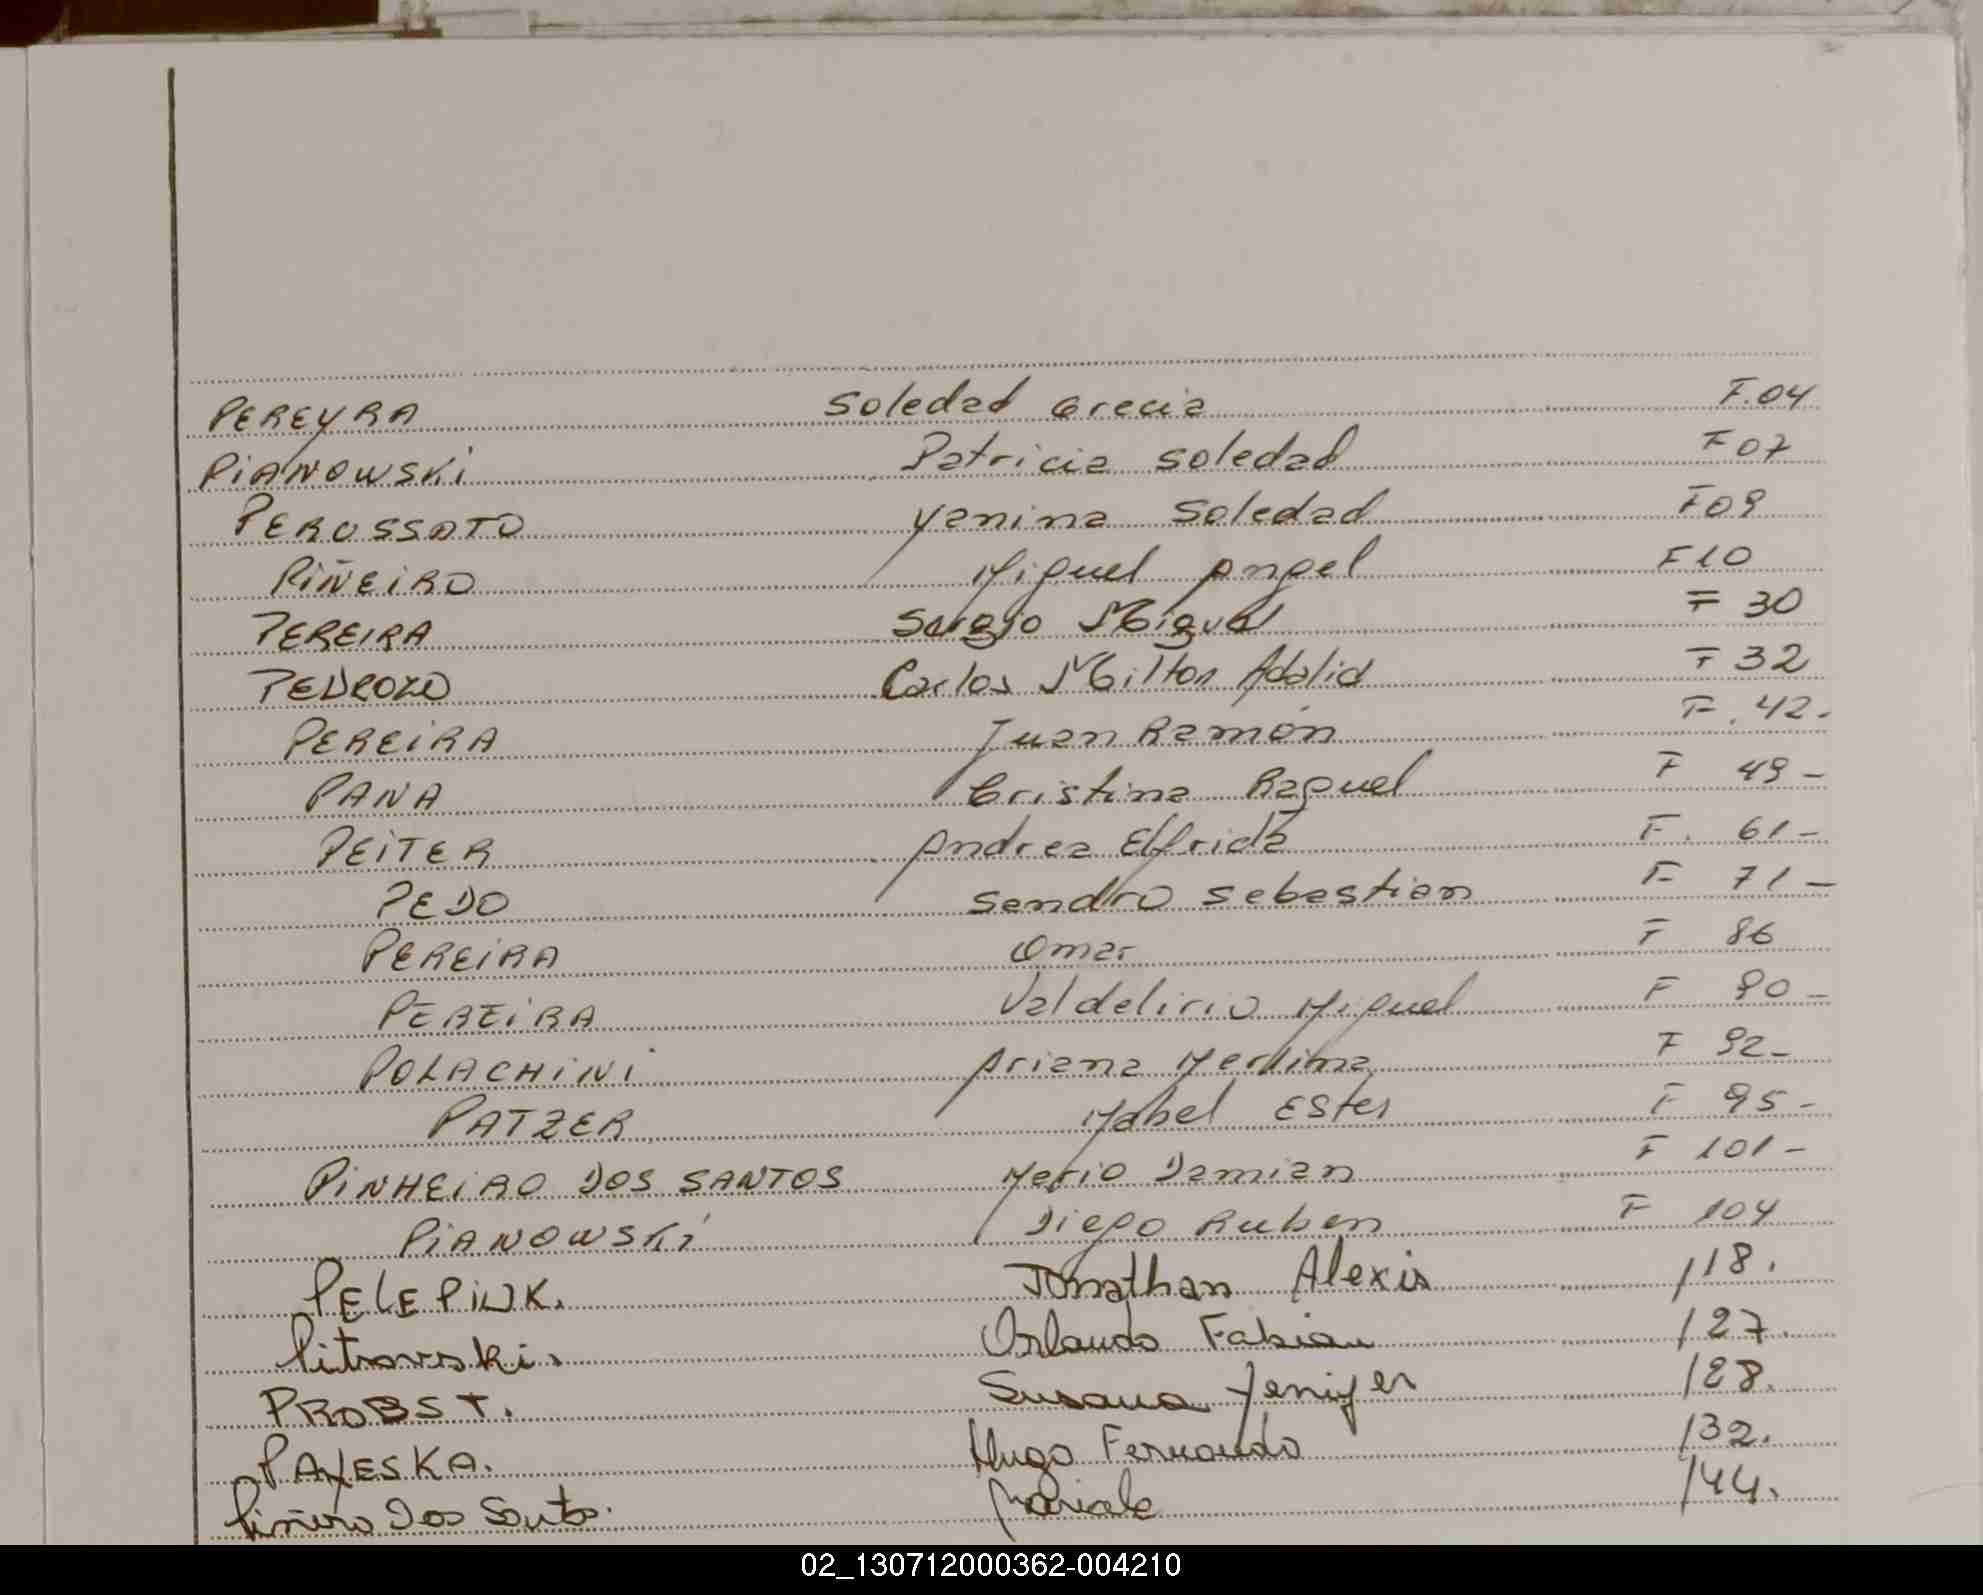 PEREYRA Soledad Grecia F.04
PIANOWSKI Patricia Soledad F 07
PEROSSOTO Yanina Soledad F 09
PIÑEIRO Miguel Angel F 10
PEREIRA Sergio Miguel F 30
PEDROZO Carlos Milton Adalid F 32
PEREIRA Juan Ramón F. 42.
PANA Cristina Raquel F 49-
PEITER Andrea Elfrida F. 61-
PEDO Sandro Sebastian F 71-
PEREIRA Omar F 86
PEREIRA Valdelirio Miguel F 90-
POLACHINI Ariana Merlina F 92-
PATZER Mabel Ester F 95-
PINHEIRO DOS SANTOS Mario Damian F 101-
PIANOWSKI Diego Ruben F 104
PELEPIUK. Jonathan Alexis 118.
Pitrovski. Orlando Fabian 127.
PROBST. Susana Jenifer 128.
PAYESKA. Hugo Fernando 132.
Piñeiro Dos Santos. 144.
02_130712000362-004210